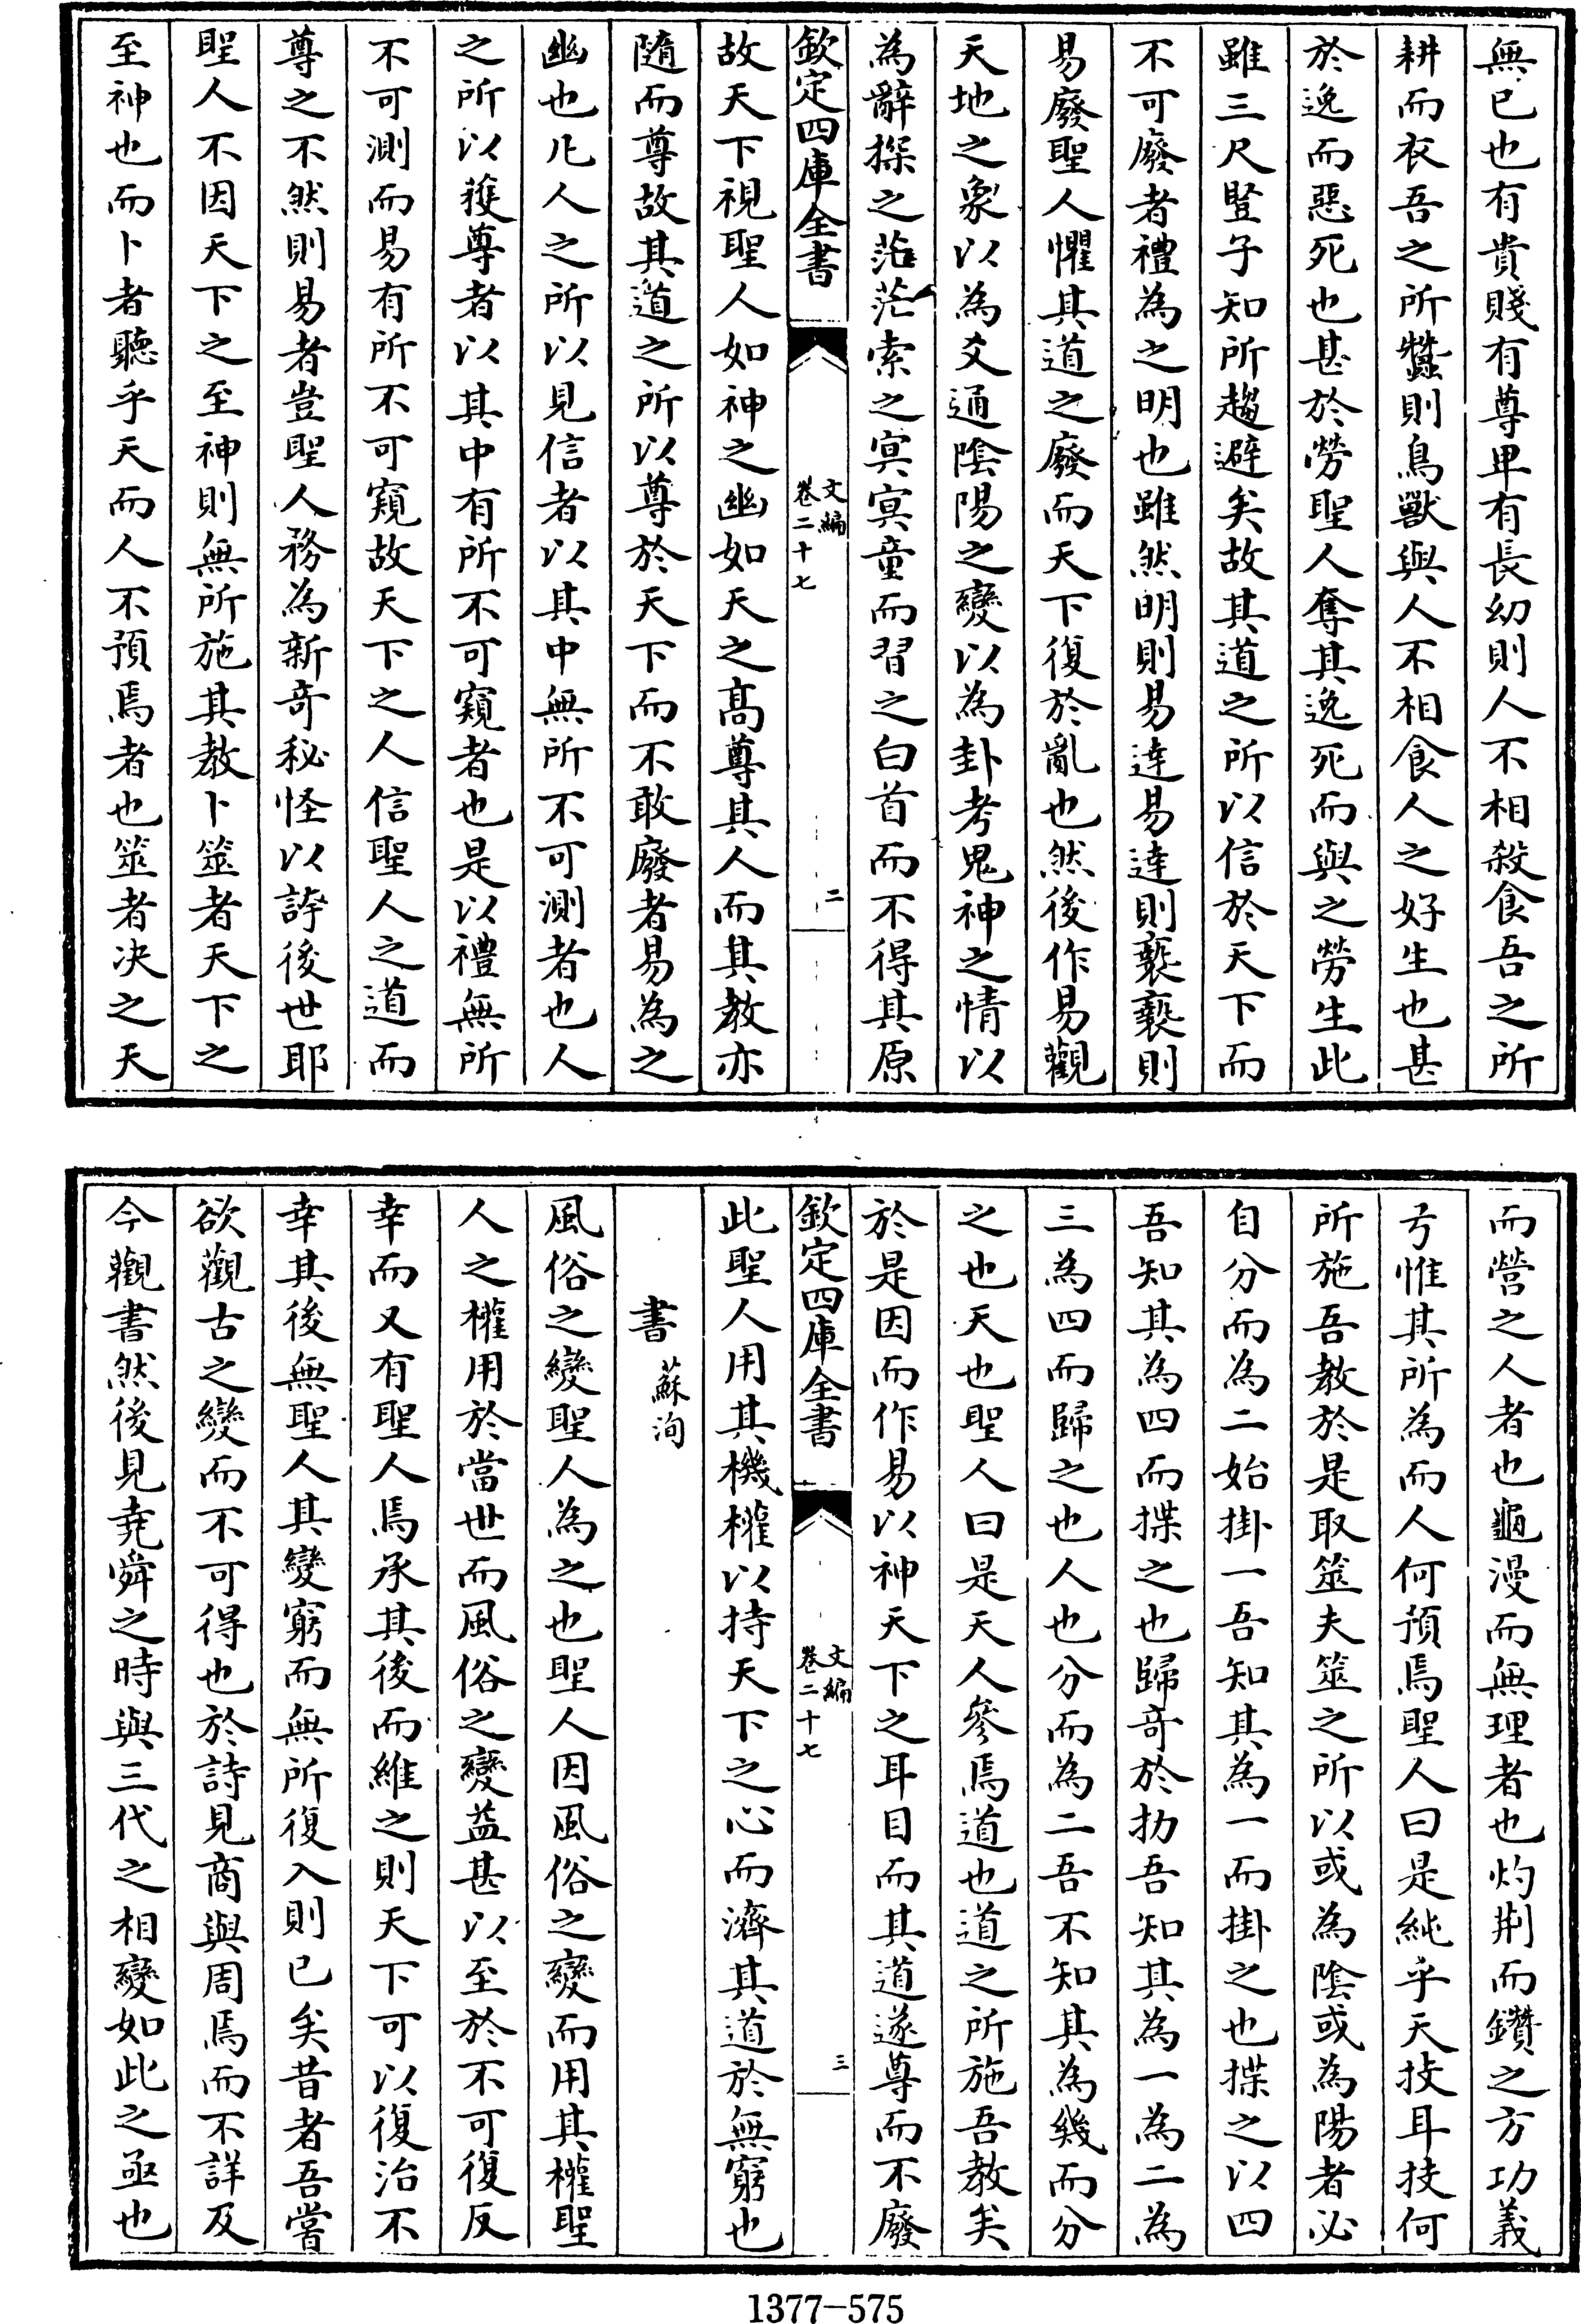 無已也有貴賤有尊卑有長幼則人不相殺食吾之所
耕而衣吾之所蠶則鳥獸與人不相食人之好生也甚
於逸而惡死也甚於勞聖人奪其逸死而與之勞生此
雖三尺豎子知所趨避矣故其道之所以信於天下而
不可廢者禮為之明也雖然明則易達易達則褻褻則
易廢聖人懼其道之廢而天下復於亂也然後作易觀
天地之象以為爻通陰陽之變以為卦考鬼神之情以
為辭探之茫茫索之冥冥童而習之白首而不得其原
欽定四庫全書
文編
卷二十七
二
故天下視聖人如神之幽如天之高尊其人而其教亦
隨而尊故其道之所以尊於天下而不敢廢者易為之
幽也凡人之所以見信者以其中無所不可測者也人
之所以獲尊者以其中有所不可窺者也是以禮無所
不可測而易有所不可窺故天下之人信聖人之道而
尊之不然則易者豈聖人務為新奇秘怪以誇後世耶
聖人不因天下之至神則無所施其教卜筮者天下之
至神也而卜者聽乎天而人不預焉者也筮者決之天
而營之人者也龜漫而無理者也灼荆而鑽之方功義
弓惟其所為而人何預焉聖人曰是純乎天技耳技何
所施吾教於是取筮夫筮之所以或為陰或為陽者必
自分而為二始掛一吾知其為一而掛之也揲之以四
吾知其為四而揲之也歸奇於扐吾知其為一為二為
三為四而歸之也人也分而為二吾不知其為幾而分
之也天也聖人曰是天人參焉道也道之所施吾教矣
於是因而作易以神天下之耳目而其道遂尊而不廢
欽定四庫全書
文編
卷二十七
三
此聖人用其機權以持天下之心而濟其道於無窮也
書 蘇洵
風俗之變聖人為之也聖人因風俗之變而用其權聖
人之權用於當世而風俗之變益甚以至於不可復反
幸而又有聖人焉承其後而維之則天下可以復治不
幸其後無聖人其變窮而無所復入則已矣昔者吾嘗
欲觀古之變而不可得也於詩見商與周焉而不詳及
今觀書然後見堯舜之時與三代之相變如此之亟也
1377-575